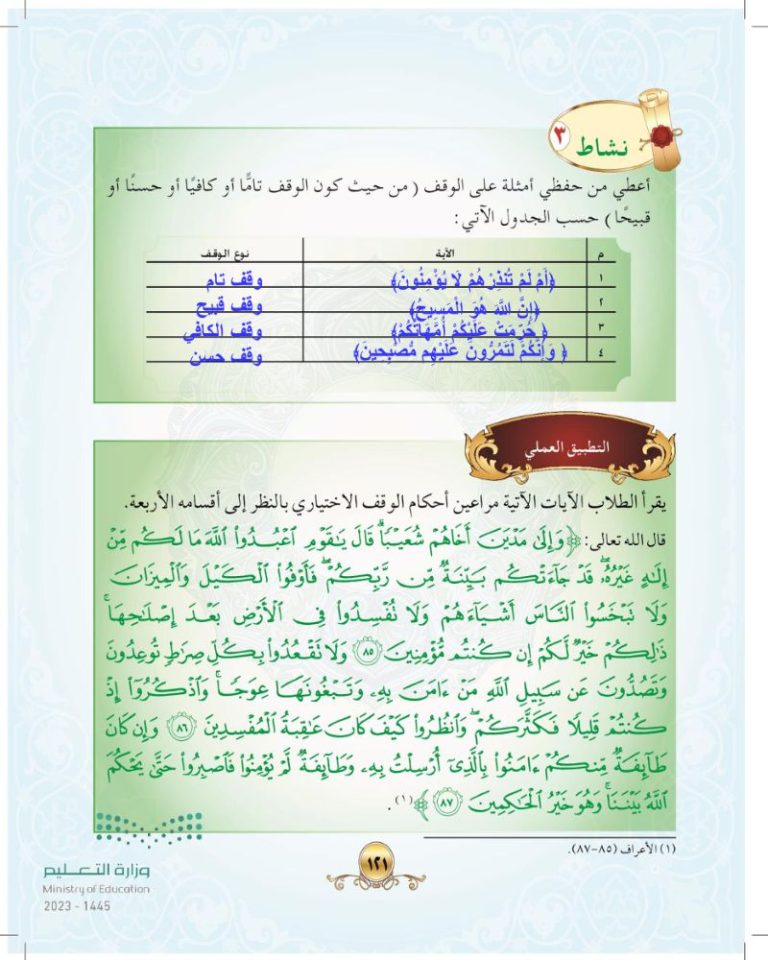 نشاط ٣
أعطي من حفظي أمثلة على الوقف ( من حيث كون الوقف تامًّا أو كافيًا أو حسنًا أو
قبيحًا ) حسب الجدول الآتي :
م الآية نوع الوقف
١ ﴿أَمْ لَمْ تُنْذِرْهُمْ لَا يُؤْمِنُونَ﴾ وقف تام
٢ ﴿إِنَّ اللَّهَ هُوَ الْمَسِيحُ﴾ وقف قبيح
٣ ﴿ حُرِّمَتْ عَلَيْكُمْ أُمَّهَاتُكُمْ﴾ وقف الكافي
٤ ﴿ وَإِنَّكُمْ لَتَمُرُّونَ عَلَيْهِم مُّصْبِحِينَ﴾ وقف حسن
التطبيق العملي
يقرأ الطلاب الآيات الآتية مراعين أحكام الوقف الاختياري بالنظر إلى أقسامه الأربعة.
قال الله تعالى: ﴿وَإِلَىٰ مَدْيَنَ أَخَاهُمْ شُعَيْبًاۗ قَالَ يَٰقَوْمِ ٱعْبُدُوا۟ ٱللَّهَ مَا لَكُم مِّنْ
إِلَٰهٍ غَيْرُهُۥۖ قَدْ جَآءَتْكُم بَيِّنَةٌ مِّن رَّبِّكُمْۖ فَأَوْفُوا۟ ٱلْكَيْلَ وَٱلْمِيزَانَ
وَلَا تَبْخَسُوا۟ ٱلنَّاسَ أَشْيَآءَهُمْ وَلَا تُفْسِدُوا۟ فِى ٱلْأَرْضِ بَعْدَ إِصْلَٰحِهَاۚ
ذَٰلِكُمْ خَيْرٌ لَّكُمْ إِن كُنتُم مُّؤْمِنِينَ ٨٥ وَلَا تَقْعُدُوا۟ بِكُلِّ صِرَٰطٍ تُوعِدُونَ
وَتَصُدُّونَ عَن سَبِيلِ ٱللَّهِ مَنْ ءَامَنَ بِهِۦ وَتَبْغُونَهَا عِوَجًاۚ وَٱذْكُرُوٓا۟ إِذْ
كُنتُمْ قَلِيلًا فَكَثَّرَكُمْۖ وَٱنظُرُوا۟ كَيْفَ كَانَ عَٰقِبَةُ ٱلْمُفْسِدِينَ ٨٦ وَإِن كَانَ
طَآئِفَةٌ مِّنكُمْ ءَامَنُوا۟ بِٱلَّذِىٓ أُرْسِلْتُ بِهِۦ وَطَآئِفَةٌ لَّمْ يُؤْمِنُوا۟ فَٱصْبِرُوا۟ حَتَّىٰ يَحْكُمَ
ٱللَّهُ بَيْنَنَاۚ وَهُوَ خَيْرُ ٱلْحَٰكِمِينَ ٨٧﴾ (١).
(١) الأعراف (٨٥-٨٧).
١٢١
وزارة التعليم
Ministry of Education
2023 - 1445